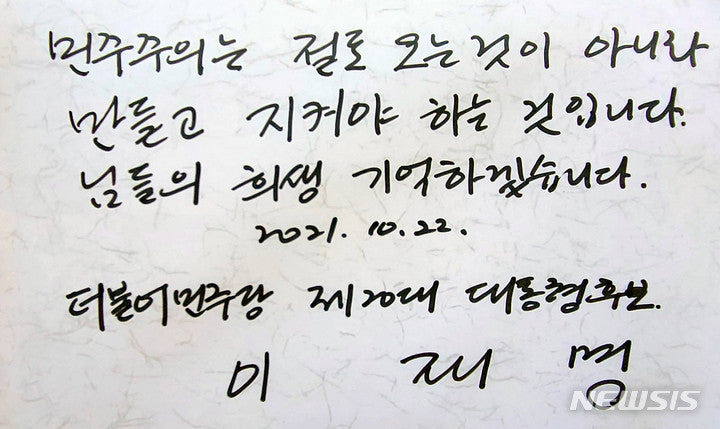 민주주의는 절로 오는 것이 아니라
만들고 지켜야 하는 것입니다.
님들의 희생 기억하겠습니다.
2021. 10. 22.
더불어민주당 제20대 대통령후보
이 재 명
NEWSIS